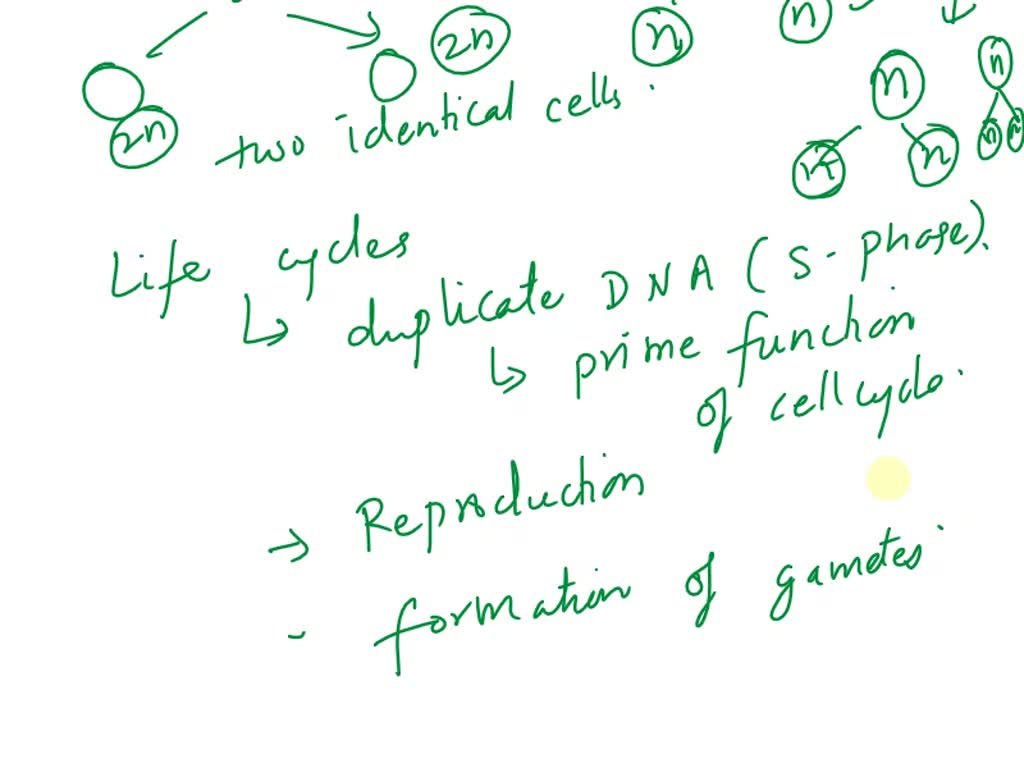 2n n n
n n
2n two identical cells.
n n n n
Life cycles
↳ duplicate DNA (S-phase).
↳ prime function
of cell cycle.
→ Reproduction
- formation of gametes.